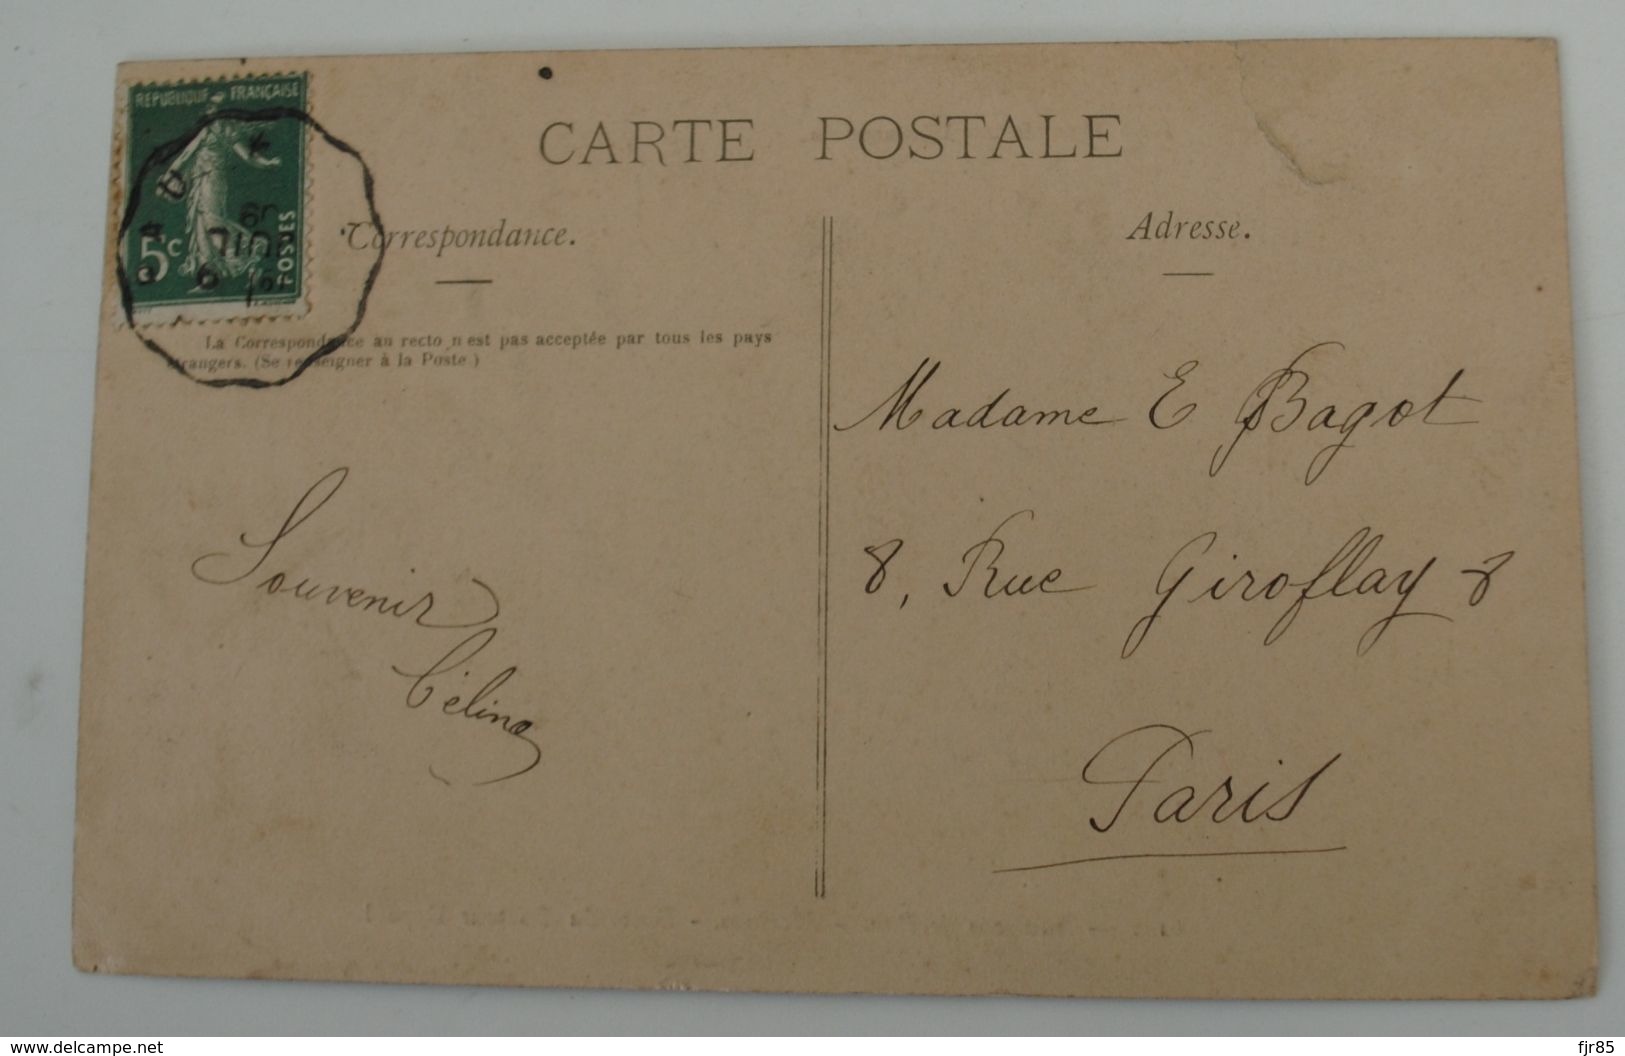 REPUBLIQUE FRANÇAISE
5c
POSTES
CARTE POSTALE
Correspondance.
La Correspondance au recto n'est pas acceptée par tous les pays
étrangers. (Se renseigner à la Poste.)
Souvenir
Céline
Adresse.
Madame E Bagot
8, Rue Giroflay 8
Paris
www.delcampe.net
fjr85